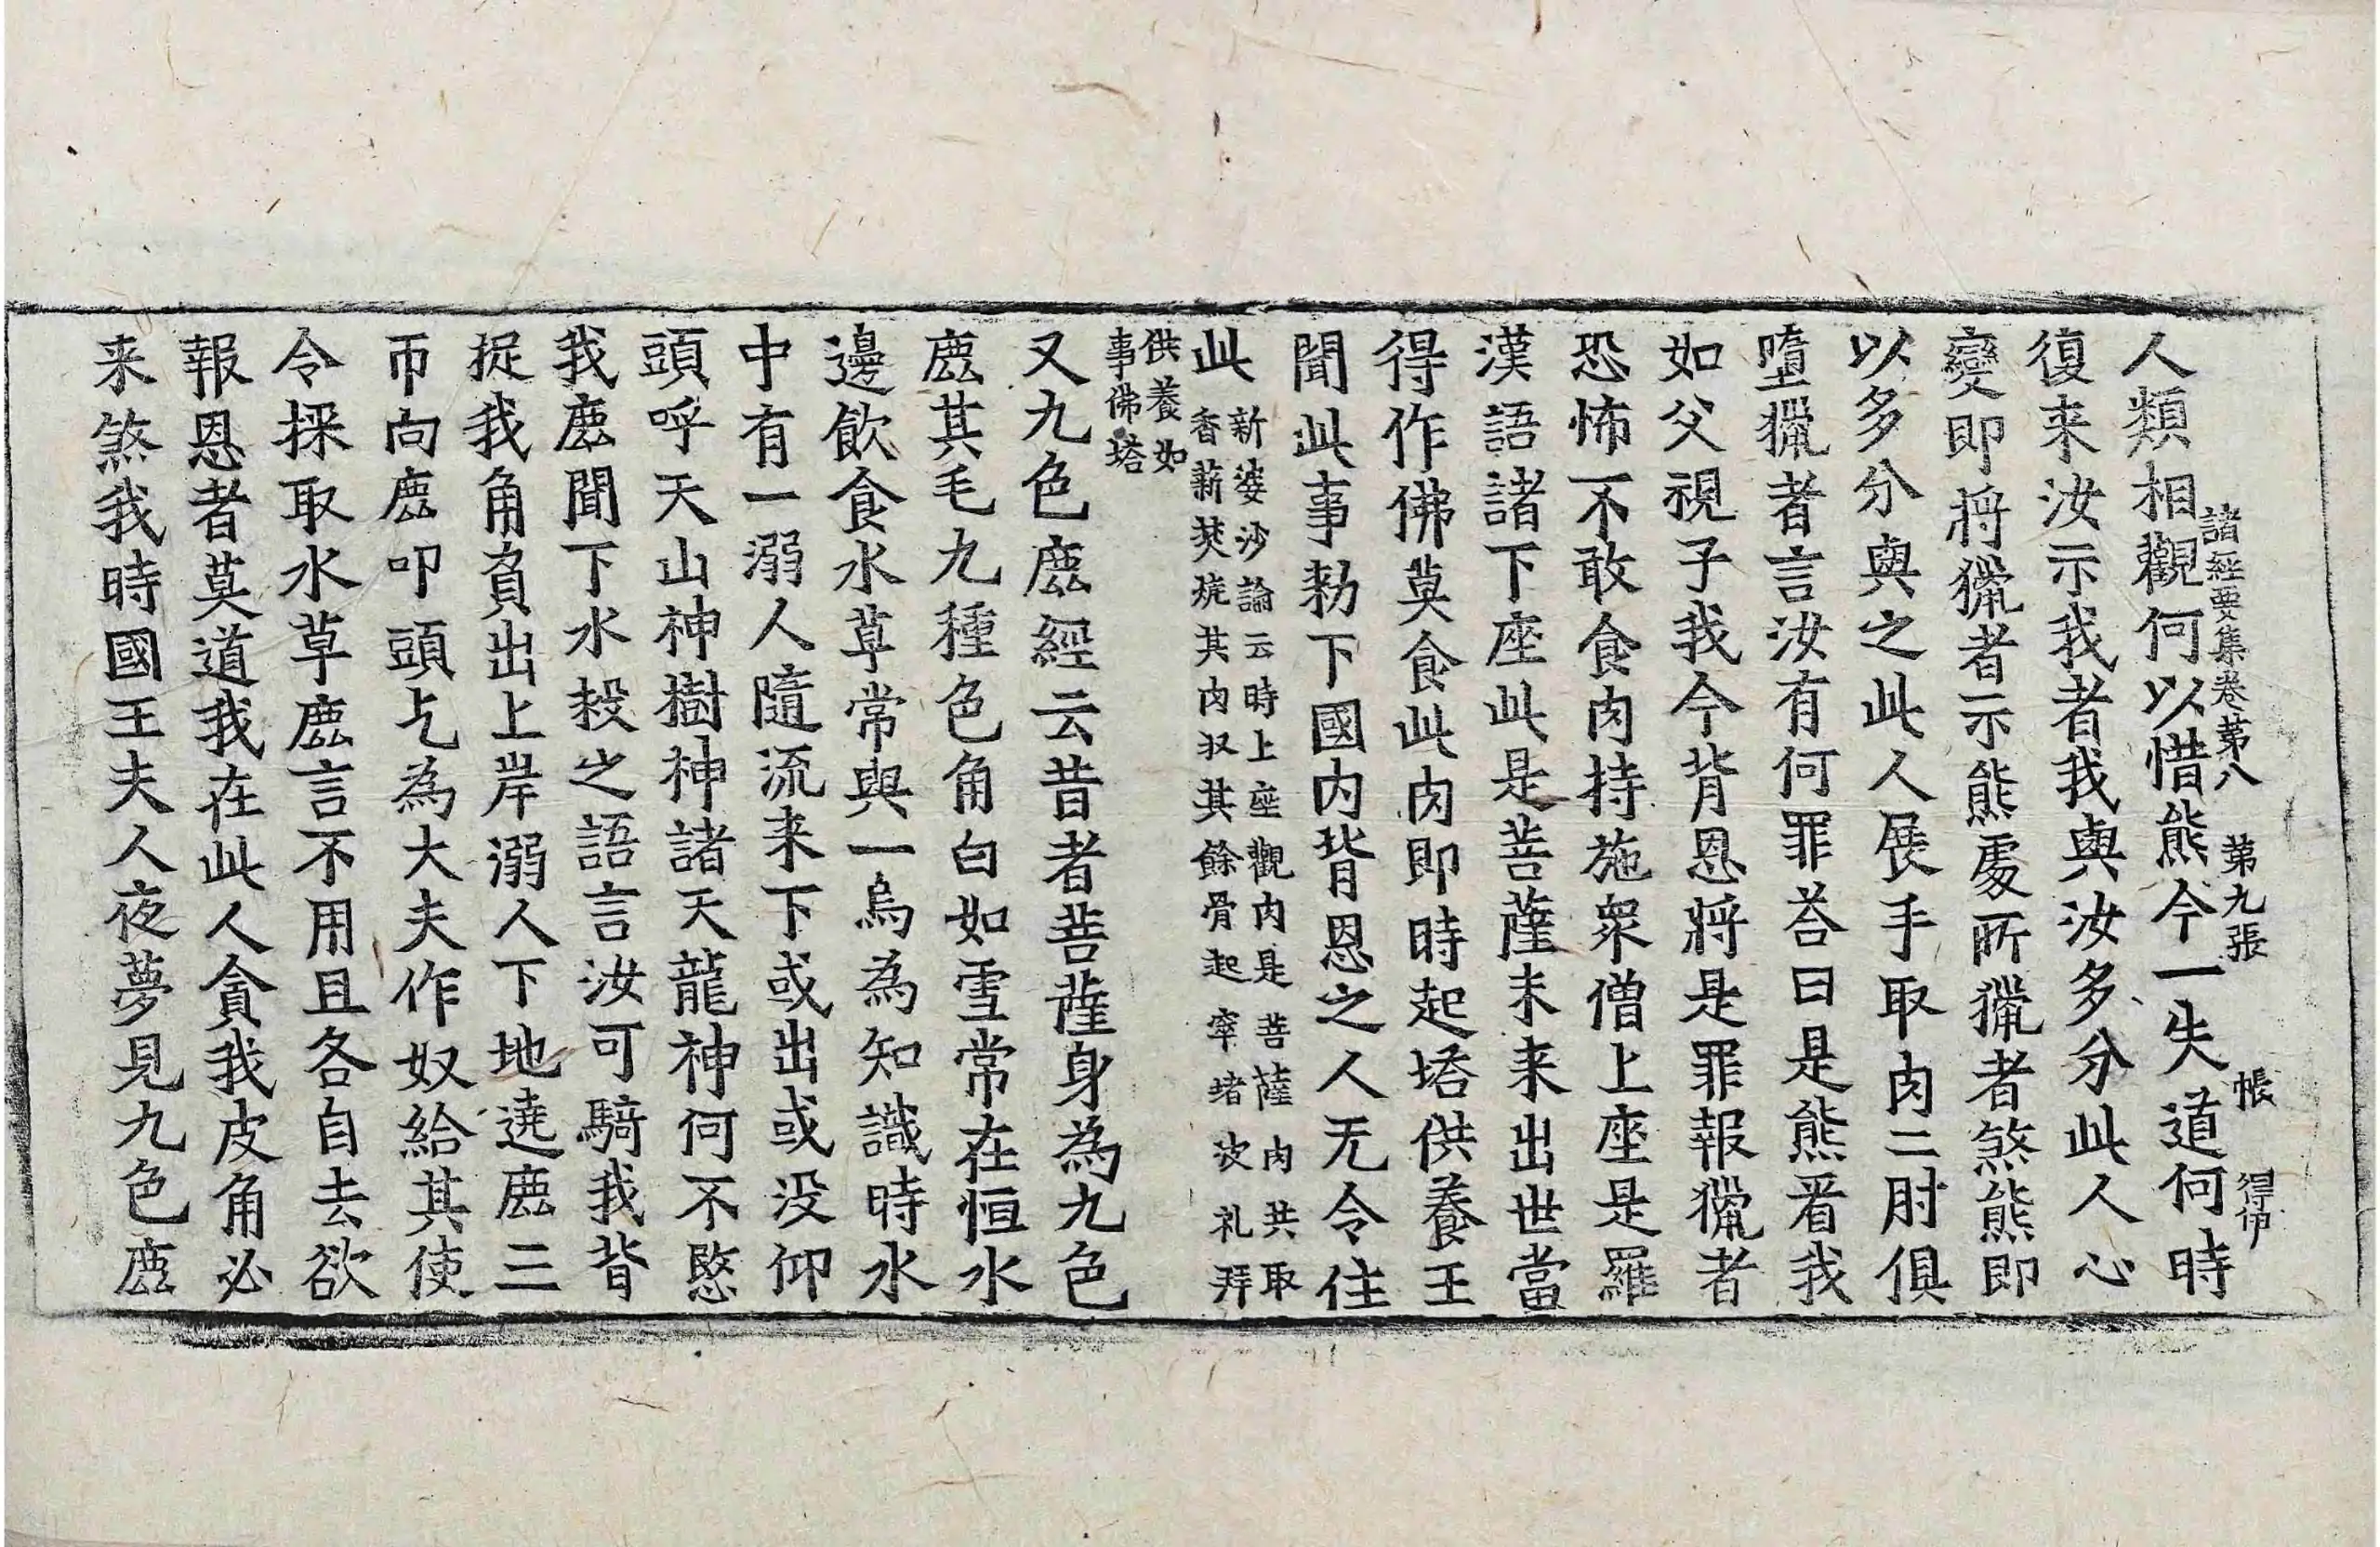 諸經要集卷苐八　苐九張　帳　得伊
人類相觀何以惜熊今一失道何時
復来汝示我者我與汝多分此人心
變即將獵者示熊處所獵者煞熊即
以多分與之此人展手取肉二肘俱
墮獵者言汝有何罪荅曰是熊㸔我
如父視子我今背恩將是罪報獵者
恐怖不敢食肉持施衆僧上座是羅
漢語諸下座此是菩薩未来出世當
得作佛莫食此肉即時起塔供養王
聞此事勑下國内背恩之人无令住
此
新婆沙論云時上座觀肉是菩薩肉共取
香薪焚燒其肉収其餘骨起窣堵波礼拜
供養如
事佛塔
又九色鹿經云昔者菩薩身為九色
鹿其毛九種色角白如雪常在恒水
邊飲食水草常與一烏為知識時水
中有一溺人隨流来下或出或没仰
頭呼天山神樹神諸天龍神何不愍
我鹿聞下水救之語言汝可騎我背
捉我角負出上岸溺人下地遶鹿三
帀向鹿叩頭乞為大夫作奴給其使
令採取水草鹿言不用且各自去欲
報恩者莫道我在此人貪我皮角必
来煞我時國王夫人夜夢見九色鹿